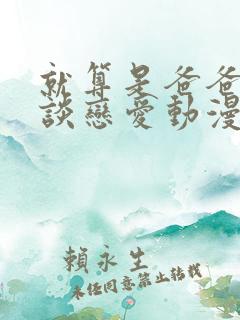 就算是爸爸
談戀愛動漫
賴永生
未任同意禁止转载